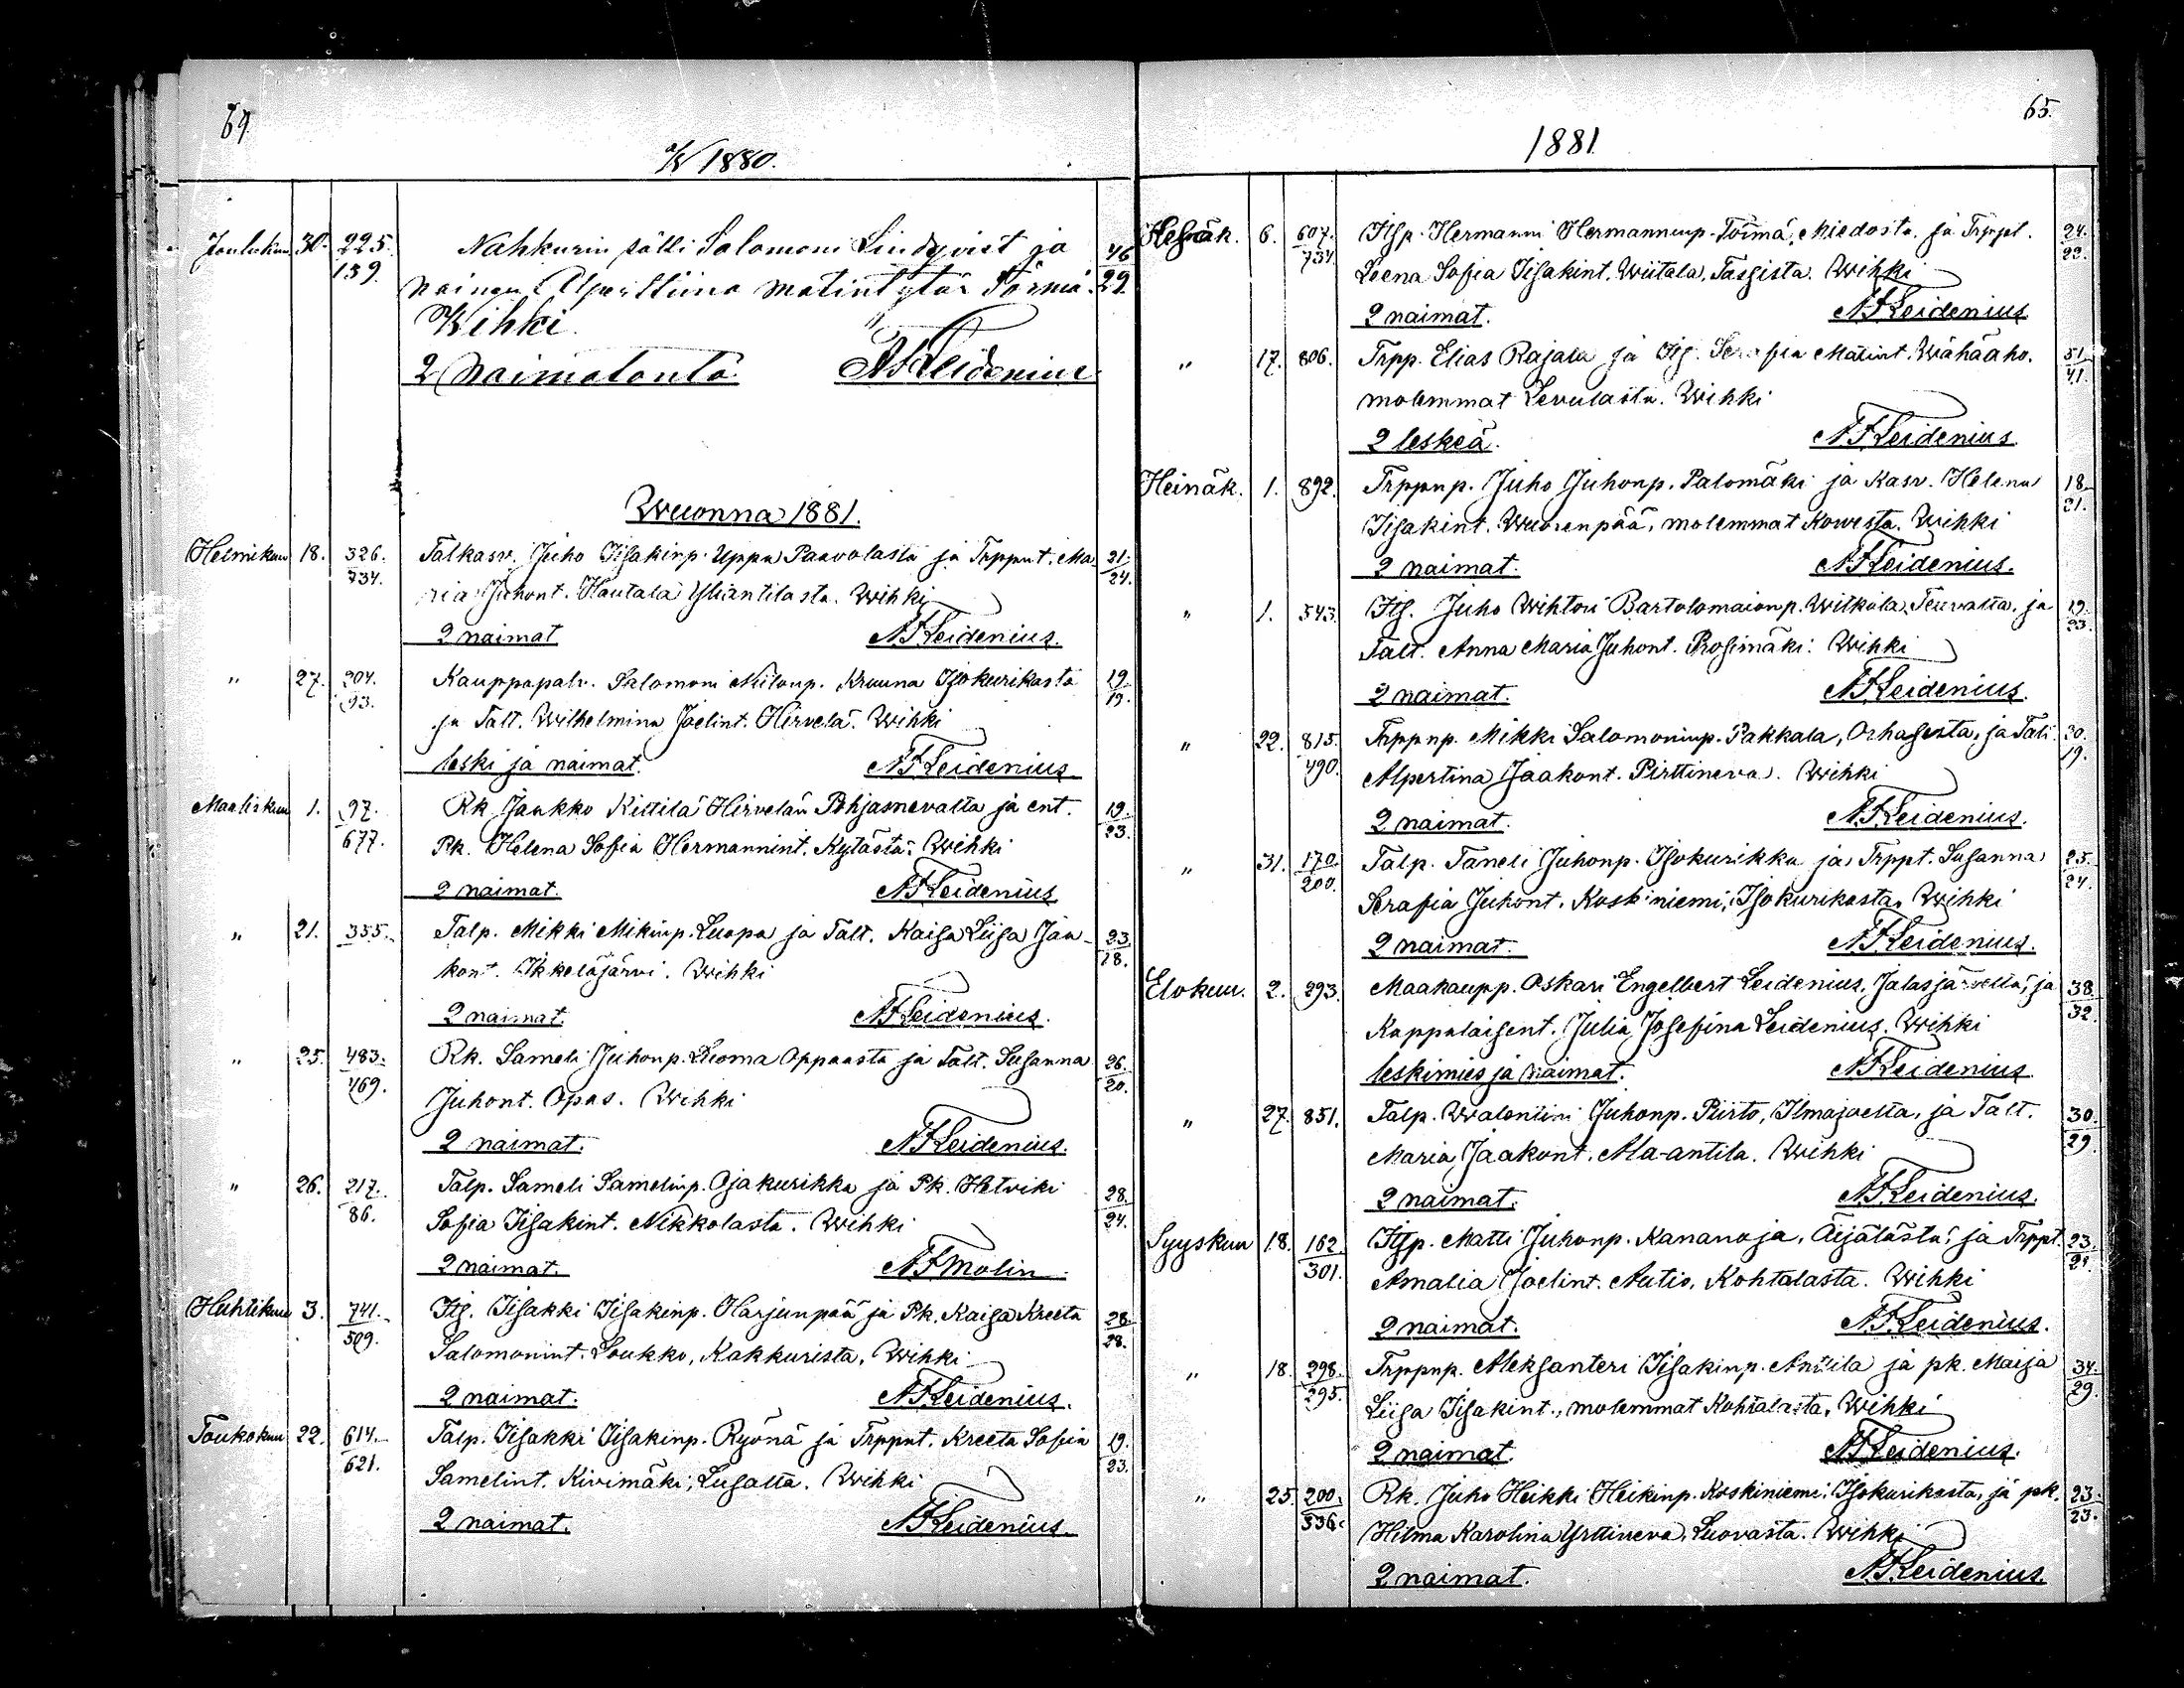 64.
W 1880.
Joulukuu 30. 225. Nahkurin sälli Salomoni Lindqvist ja 46
139. nainen Alperttiina Matintytär Törmä. 29.
Wihki
2 Naimatonta. AF Leidenius
Wuonna 1881.
Helmikuu 18. 326. Talkasv. Juho Iisakinp. Uppa Paavolasta ja Trppnt. Ma- 21.
734. ria Juhont. Hautala Yliantilasta. Wihki 24.
2 naimat AF Leidenius.
" 27. 204. Kauppapalv. Salomoni Niilonp. Kruuna Isokurikasta 19
93. ja Talt. Wilhelmina Joelint. Hirvelä. Wihki 19.
leski ja naimat. AF Leidenius
Maaliskuu 1. 97. Rk Jaakko Kittilä Hirvelän Pohjasnevalta ja ent. 19.
677. Pk. Helena Sofia Hermannint. Kylästä. Wihki 23.
2 naimat. AF Leidenius
" 21. 335. Talp. Mikki Mikinp. Luopa ja Talt. Kaisa Liisa Jaa- 23.
kont. Ikkeläjärvi. Wihki 18.
2 naimat. AF Leidenius.
" 25. 483. Rk. Sameli Juhonp. Luoma Oppaasta ja Talt. Susanna 26.
469. Juhont. Opas. Wihki 20.
2 naimat. AF Leidenius.
" 26. 217. Talp. Sameli Samelinp. Ojakurikka ja Pk. Hetviki 28.
86. Sofia Iisakint. Nikkolasta. Wihki 24.
2 naimat. AF Molin
Huhtikuu 3. 741. Its. Iisakki Iisakinp. Harjunpää ja Pk. Kaisa Kreeta 28.
509. Salomonint. Loukko, Kakkurista. Wihki 28.
2 naimat. AF Leidenius.
Toukokuu 22. 614. Talp. Iisakki Iisakinp. Ryönä ja Trppnt. Kreeta Sofia 19.
621. Samelint. Kivimäki, Lusalta. Wihki 23.
2 naimat. AF Leidenius.
65.
1881.
Kesäk. 6. 607. Itsp. Hermanni Hermanninp. Törmä, Miedosta. ja Trppt. 24.
734. Leena Sofia Iisakint. Wiitala, Tassista. Wihki 23.
2 naimat. AF Leidenius
" 17. 806. Trpp. Elias Rajala ja Its. Serafia Matint. Wähäaho. 51.
molemmat Levulasta. Wihki 41.
2 leskeä. AF Leidenius.
Heinäk. 1. 892. Trppnp. Juho Juhonp. Palomäki ja Kasv. Helena 18.
Iisakint. Wuorenpää, molemmat Kowesta. Wihki 21.
2 naimat. AF Leidenius.
" 1. 543. Its. Juho Wihtori Bartolomaionp. Witkala, Teuvalta. ja 19.
Talt. Anna Maria Juhont. Prosimäki. Wihki 23.
2 naimat. AF Leidenius.
" 22. 815. Trppnp. Mikki Salomoninp. Pakkala, Orhasesta, ja Talt. 30.
490. Alpertina Jaakont. Pirttineva. Wihki 19.
2 naimat. AF Leidenius.
" 31. 170. Talp. Taneli Juhonp. Isokurikka ja Trppt. Susanna 25.
200. Serafia Juhont. Koskiniemi, Isokurikasta. Wihki 24.
2 naimat. AF Leidenius.
Elokuu. 2. 293. Maakaupp. Oskari Engelbert Leidenius, Jalasjärvelta, ja 38.
Kappalaisent. Julia Josefina Leidenius. Wihki 32.
leskimies ja naimat. AF Leidenius
" 27. 851. Talp. Waleniini Juhonp. Piirto, Ilmajoelta, ja Talt. 30.
Maria Jaakont. Ala-antila. Wihki 29.
2 naimat. AF Leidenius.
Syyskuu 18. 162. Itsp. Matti Juhonp. Kananoja, Äijälästä, ja Trppt. 23.
301. Amalia Joelint. Autio, Kohtalasta. Wihki
2 naimat. AF Leidenius.
" 18. 298. Trppnp. Aleksanteri Iisakinp. Anttila ja pk. Maija 34.
295. Liisa Iisakint., molemmat Kohtalasta. Wihki 29.
2 naimat. AF Leidenius.
" 25. 200. Rk. Juho Heikki Heikinp. Koskiniemi, Isokurikasta, ja pk. 23.
336. Hilma Karolina Yrttineva, Luovasta. Wihki 23.
2 naimat. AF Leidenius.